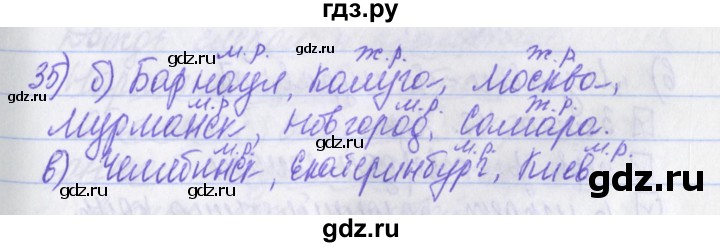 гдз.ру
м.р. ж.р. ж.р.
35) б) Барнаул, Калуга, Москва,
м.р. м.р. ж.р.
Мурманск, Новгород, Самара.
м.р. м.р. м.р.
в) Челябинск, Екатеринбург, Киев
gdz.ru gdz.ru gdz.ru
gdz.ru gdz.ru
gdz.ru gdz.ru gdz.ru